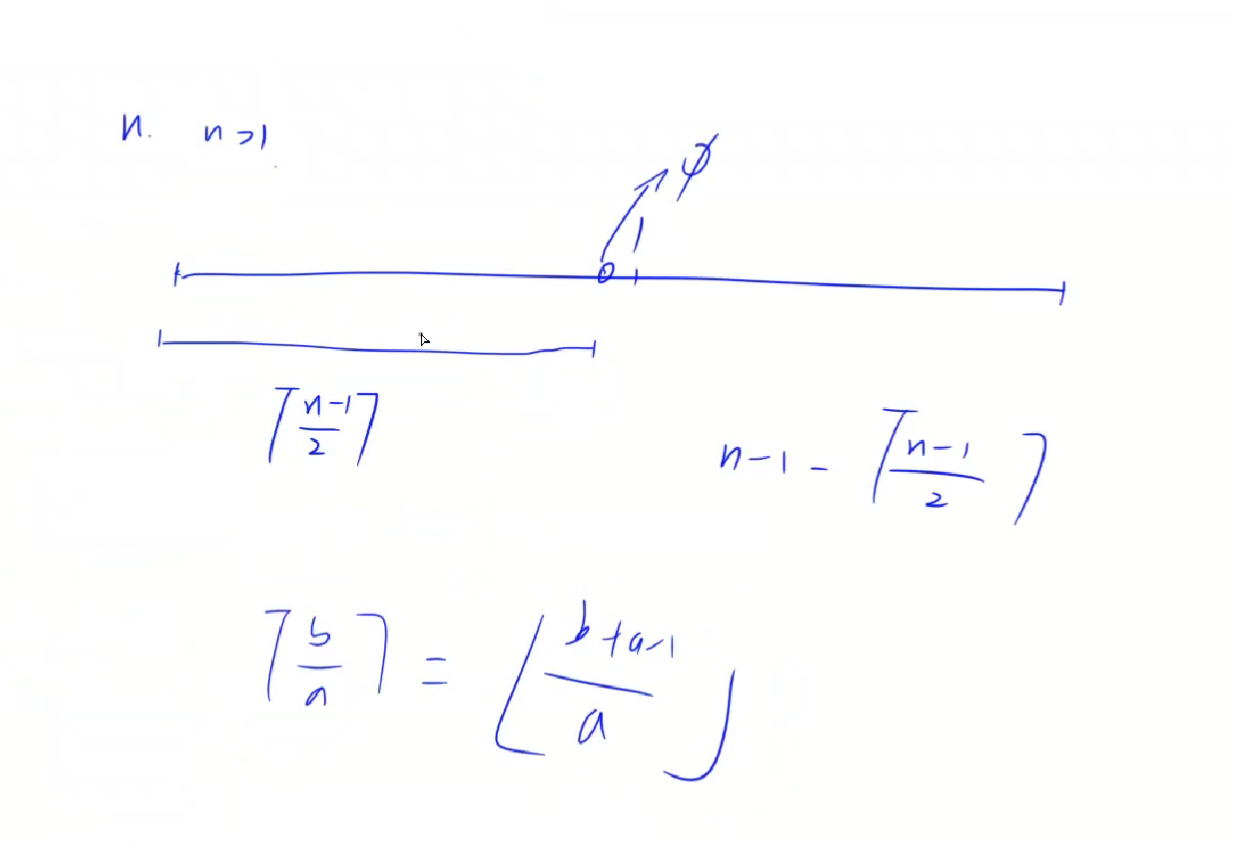 n. n>1
φ
1
⌈(n-1)/2⌉
n-1 - ⌈(n-1)/2⌉
⌈b/a⌉ = ⌊(b+a-1)/a⌋